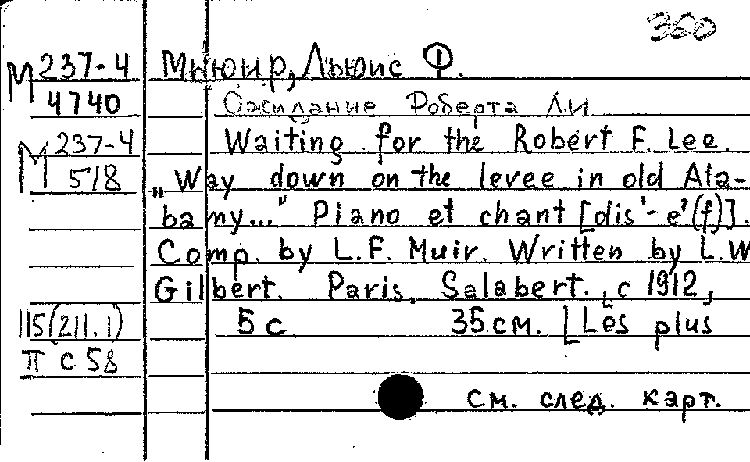 360
М 237-4 Мьюир, Льюис Ф.
4740 Ожидание Роберта Ли
М 237-4 Waiting for the Robert F. Lee.
518 „Way down on the levee in old Ala-
bamy..." Piano et chant [dis'-e²(f)].
Comp. by L.F. Muir. Written by L.W
Gilbert. Paris, Salabert., c 1912,
115(211.1) 5 с 35 см. [Les plus
П с 58
См. след. карт.